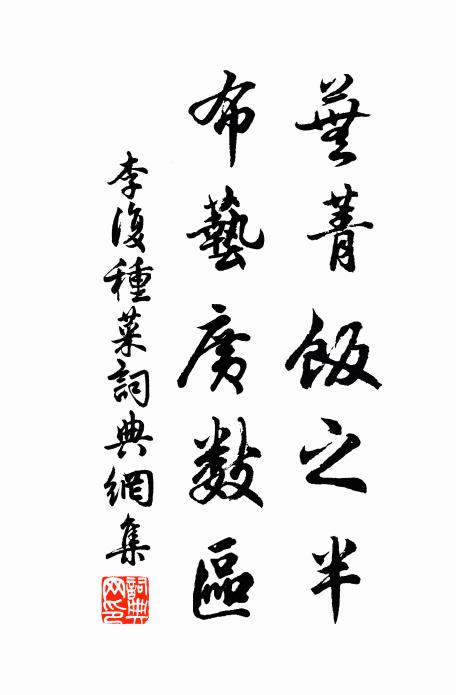 蕪菁飯之半
布藝廣數區
李復種菜詞典網集
詞典网印